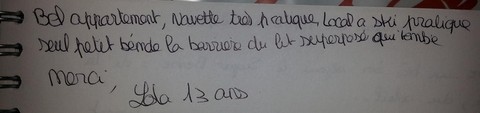 Bel appartement, Navette très pratique, Local a ski pratique
seul petit bémde la barriere du lit superposé qui tombe
merci,
Lola 13 ans